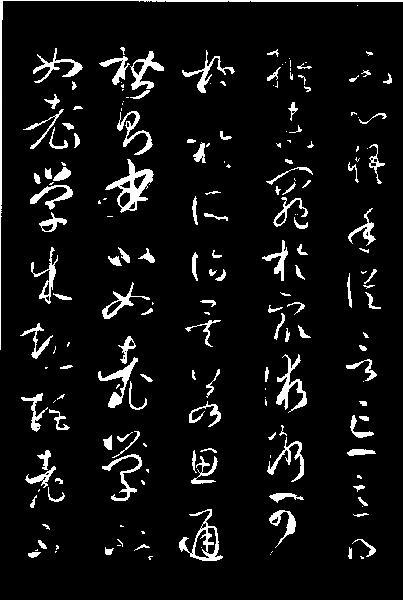 不心悟手從言忘意得
縱未窮於眾術斷可
極於所詣矣若思通
楷則如老學
如老學成規矩老不